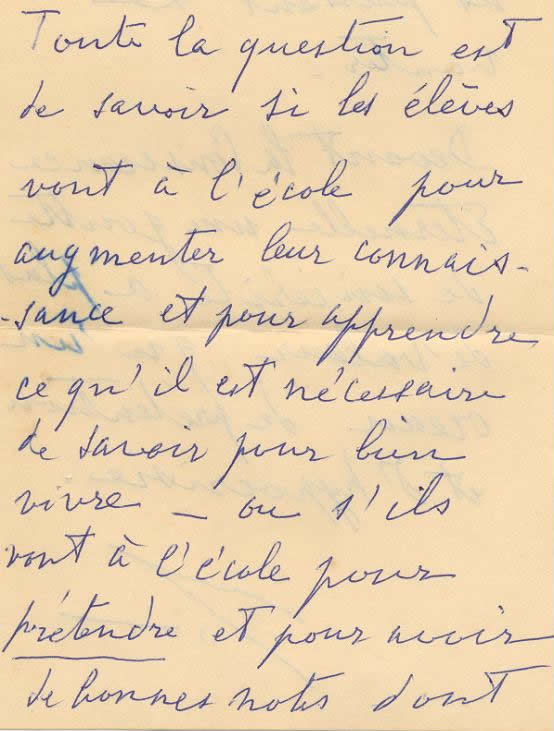 Toute la question est
de savoir si les élèves
vont à l'école pour
augmenter leur connais-
-sance et pour apprendre
ce qu'il est nécessaire
de savoir pour bien
vivre – ou s'ils
vont à l'école pour
prétendre et pour avoir
de bonnes notes dont